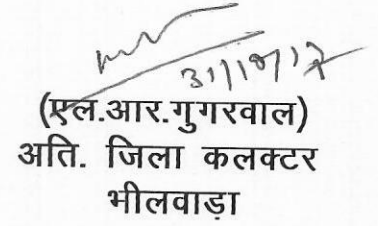 31/10/17
(एल.आर.गुगरवाल)
अति. जिला कलक्टर
भीलवाड़ा